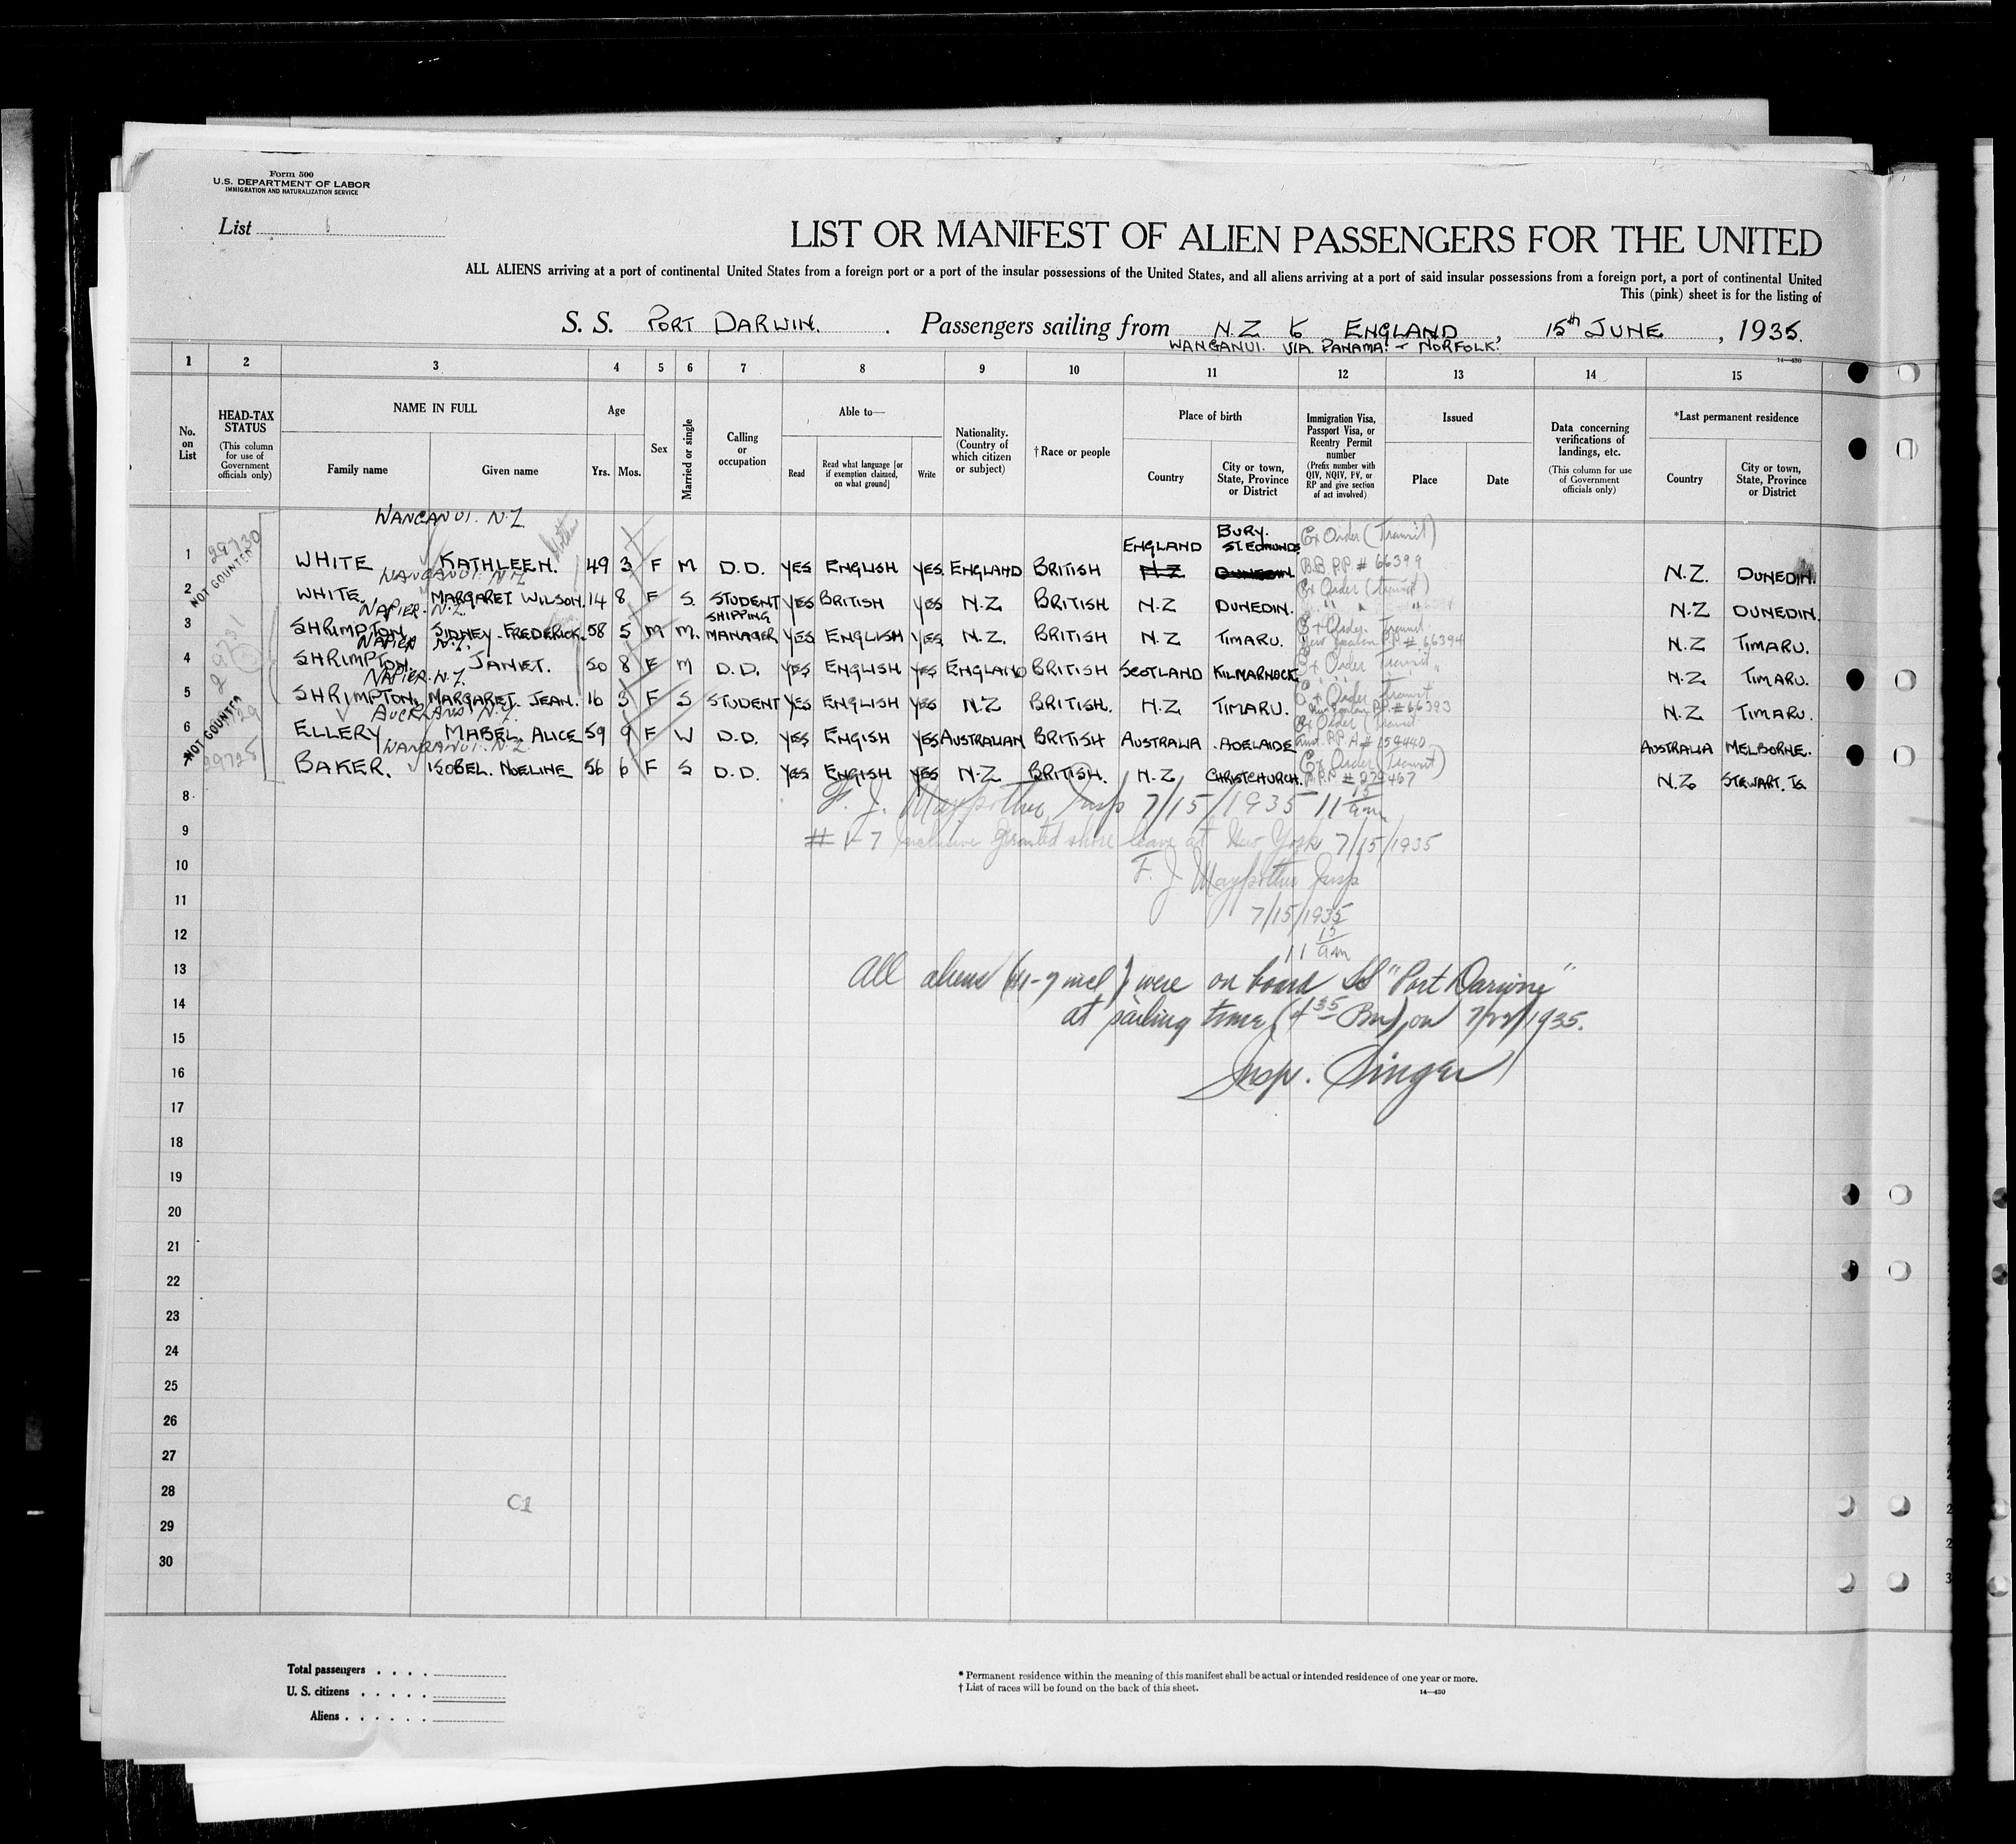 Form 500
U.S. DEPARTMENT OF LABOR
IMMIGRATION AND NATURALIZATION SERVICE
List 6
LIST OR MANIFEST OF ALIEN PASSENGERS FOR THE UNITED
ALL ALIENS arriving at a port of continental United States from a foreign port or a port of the insular possessions of the United States, and all aliens arriving at a port of said insular possessions from a foreign port, a port of continental United
This (pink) sheet is for the listing of
S. S. PORT DARWIN. Passengers sailing from N.Z to ENGLAND, 15th JUNE, 1935.
WANGANUI. VIA. PANAMA. & NORFOLK.
14—430
1 2 3 4 5 6 7 8 9 10 11 12 13 14 15
No. on List
HEAD-TAX STATUS
(This column for use of Government officials only)
NAME IN FULL
Family name
Given name
Age
Yrs.
Mos.
Sex
Married or single
Calling or occupation
Able to—
Read
Read what language [or if exemption claimed, on what ground]
Write
Nationality. (Country of which citizen or subject)
†Race or people
Place of birth
Country
City or town, State, Province or District
Immigration Visa, Passport Visa, or Reentry Permit number
(Prefix number with QIV, NQIV, PV, or RP and give section of act involved)
Issued
Place
Date
Data concerning verifications of landings, etc.
(This column for use of Government officials only)
*Last permanent residence
Country
City or town, State, Province or District
WANGANUI. N.Z.
29730 NOT COUNTED
1 WHITE KATHLEEN. Mother 49 3 F M D.D. YES ENGLISH YES ENGLAND BRITISH ENGLAND N.Z BURY. ST. EDMUNDS DUNEDIN. Ex Order (Transit) N.Z. DUNEDIN.
B.B. P.P. # 66399
WANGANUI. N.Z.
2 WHITE. MARGARET WILSON. 14 8 F S. STUDENT YES BRITISH YES N.Z BRITISH N.Z DUNEDIN. Ex Order (Transit) N.Z DUNEDIN.
NAPIER. N.Z.
29731
3 SHRIMPTON SIDNEY. FREDERICK. 58 5 M M. SHIPPING MANAGER YES ENGLISH YES. N.Z. BRITISH N.Z TIMARU. Ex Order. Transit N.Z TIMARU.
New Zealand P.P. # 66394
NAPIER N.Z.
4 SHRIMPTON. JANET. 50 8 F M D.D. YES ENGLISH YES ENGLAND BRITISH SCOTLAND KILMARNOCK. Ex Order Transit N.Z TIMARU.
NAPIER. N.Z.
5 SHRIMPTON. MARGARET. JEAN. 16 3 F S STUDENT YES ENGLISH YES N.Z BRITISH. N.Z TIMARU. Ex Order Transit N.Z TIMARU.
New Zealand P.P. # 66393
AUCKLAND N.Z.
NOT COUNTED
6 ELLERY MABEL. ALICE 59 9 F W D.D. YES ENGISH YES AUSTRALIAN BRITISH AUSTRALIA ADELAIDE Ex Order Transit AUSTRALIA MELBORNE.
Aust. P.P. # 159440
WANGANUI. N.Z.
29725
7 BAKER. ISOBEL. NOELINE 56 6 F S D.D. YES ENGISH YES N.Z BRITISH. N.Z CHRISTCHURCH. Ex Order (Transit) N.Z STEWART. IS.
8 F. J. Maypother Insp 7/15/1935 11 15 am
9 # 1-7 Inclusive granted shore leave at New York 7/15/1935
10 F. J Maypother Insp
11 7/15/1935
12 11 15 am
13 All aliens (#1-7 incl) were on board SS "Port Darwin"
14 at sailing time (4 35 Pm) on 1935.
15
16 Insp. Singer
17
18
19
20
21
22
23
24
25
26
27
28 C1
29
30
Total passengers
U. S. citizens
Aliens
* Permanent residence within the meaning of this manifest shall be actual or intended residence of one year or more.
† List of races will be found on the back of this sheet.
14—430